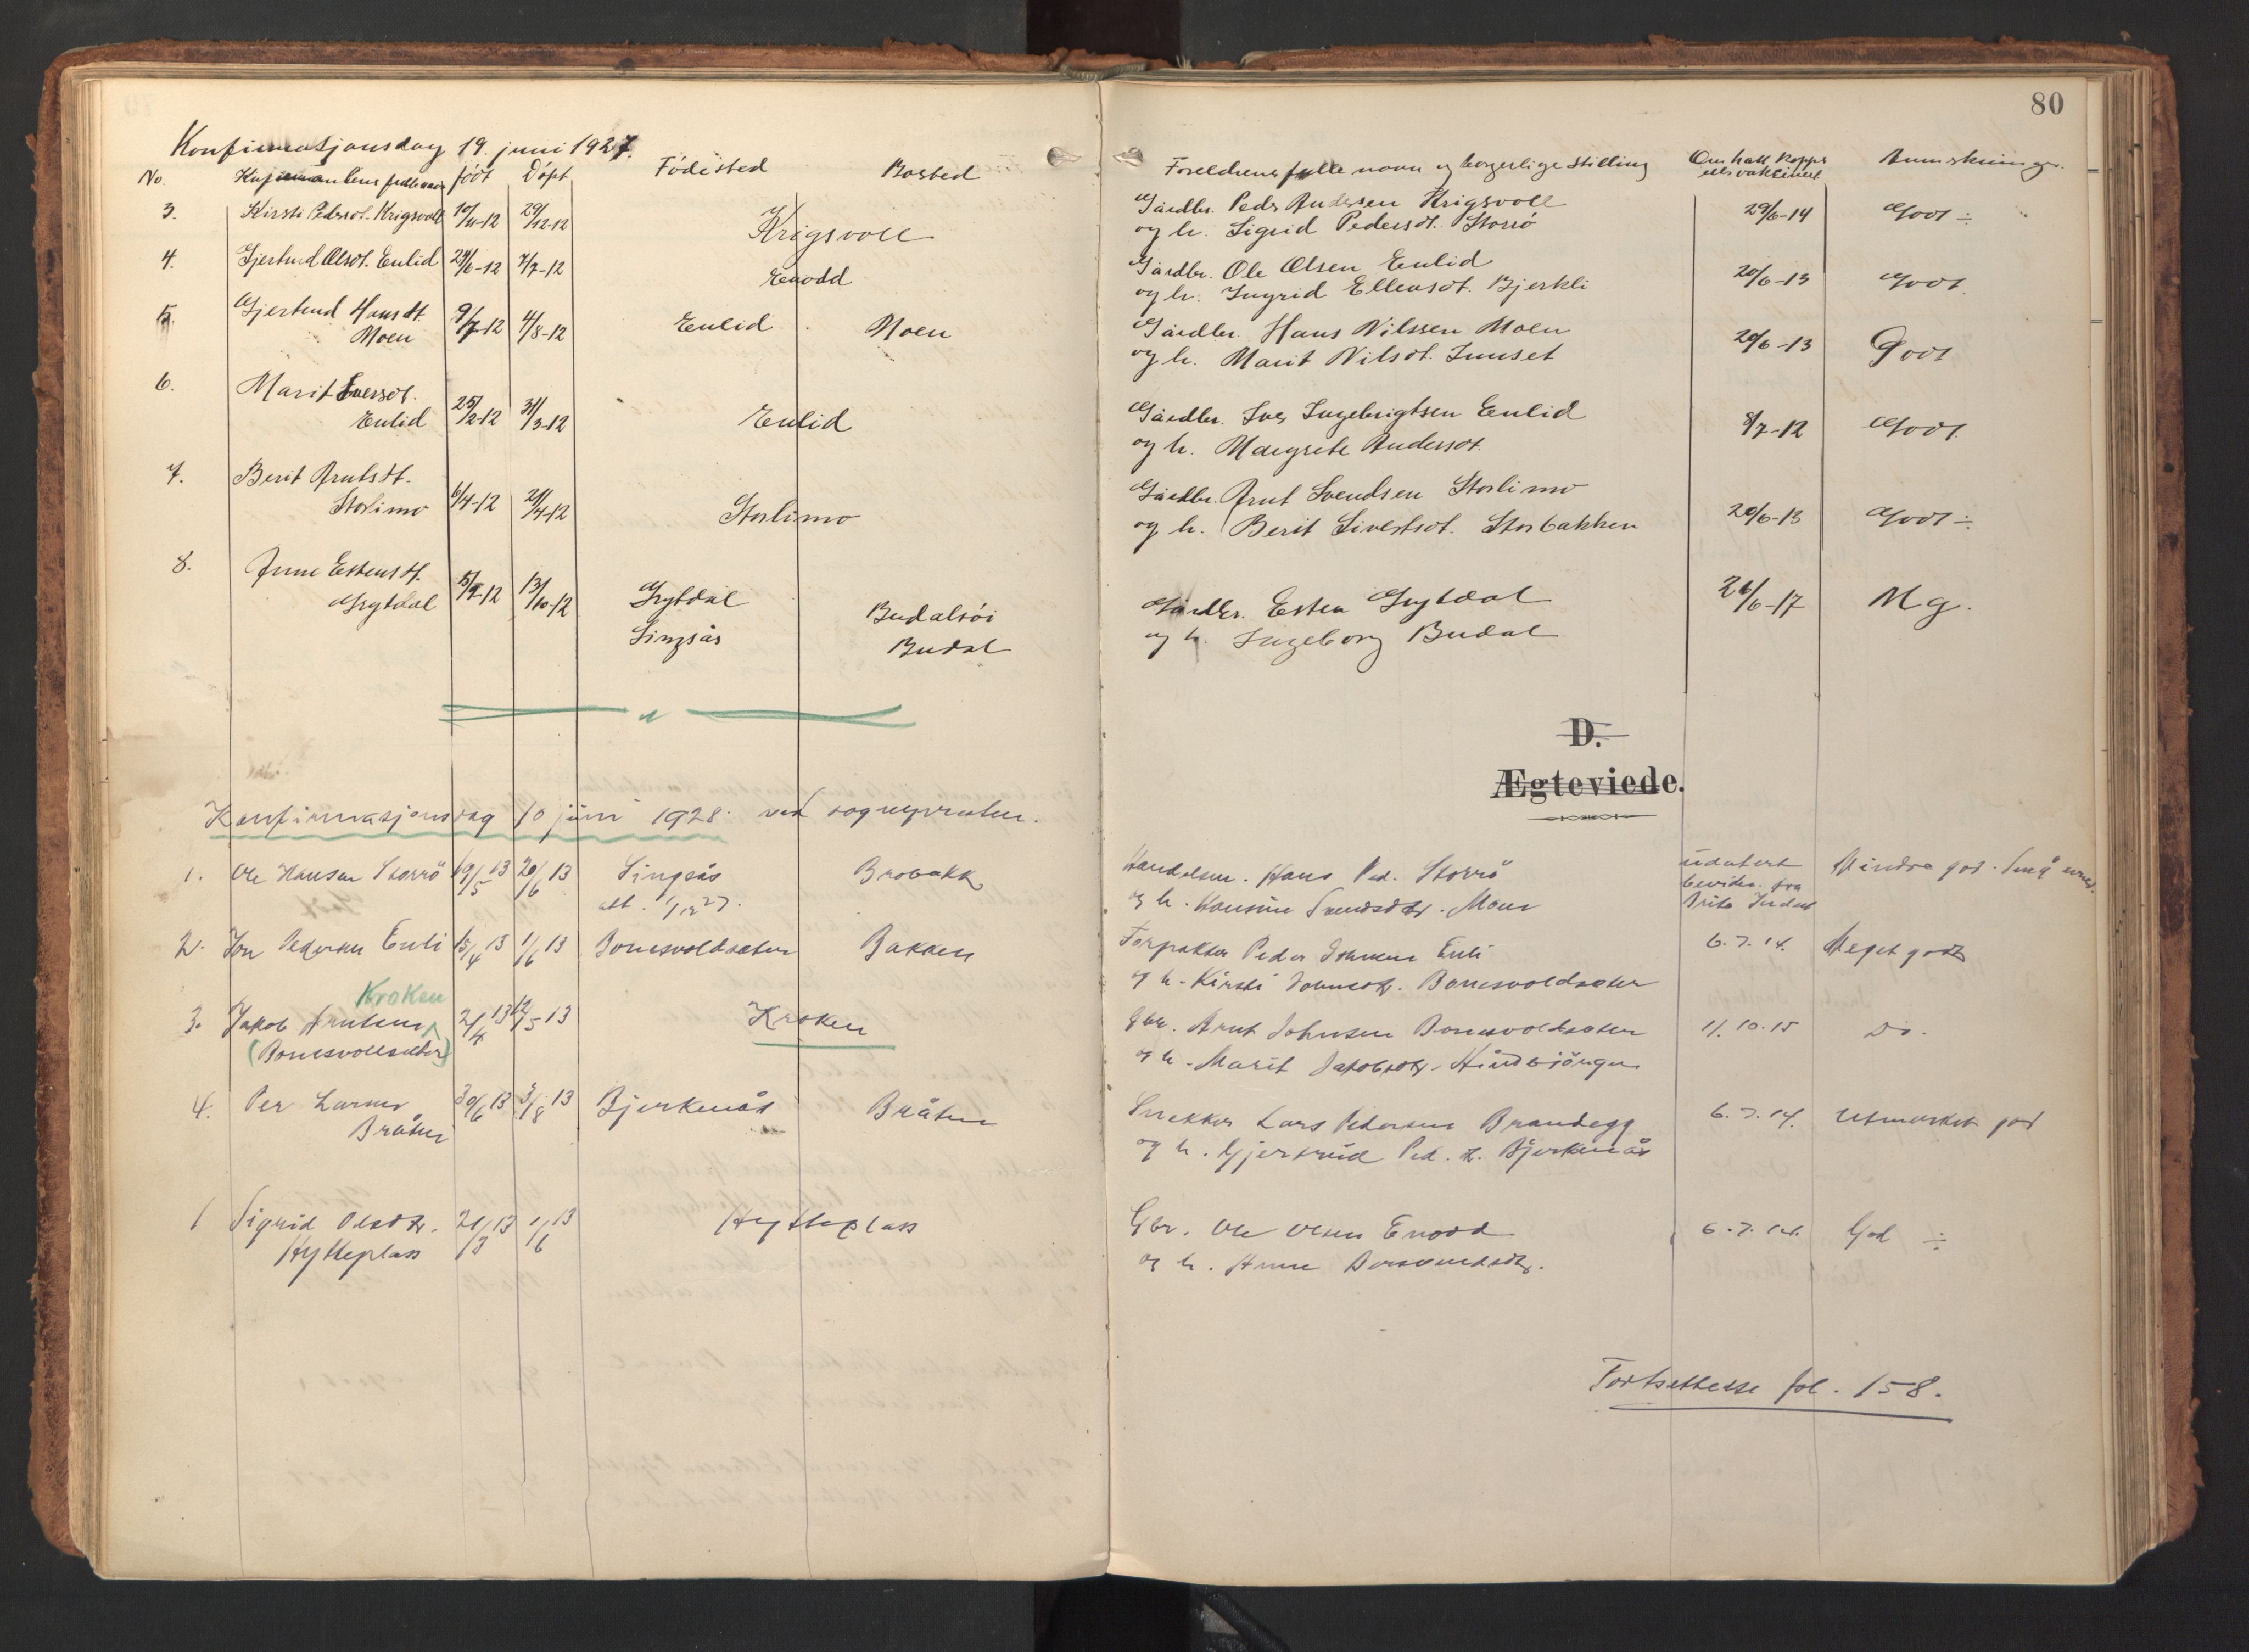 80
Konfirmasjonsdag 19. juni 1927.
No. Konfirmantens fulle navn født Döpt Födested Bosted Foreldrenes fulle navn og borgerlige stilling Om hatt kopper Anmerkninger.
eller vaksinert
3. Kirsti Pedersdt. Krigsvoll 10/11-12 29/12-12 Krigsvoll Gårdbr. Peder Andersen Krigsvoll 29/6-14 Godt ÷
og h. Sigrid Pedersdt. Storrö
4. Gjertrud Olsdt. Enlid 24/6-12 7/7-12 Enodd Gårdbr. Ole Olsen Enlid 20/6-13 Godt.
og h. Ingrid Ellensdt. Bjerkli
5. Gjertrud Hansdt. 9/7-12 4/8-12 Enlid Moen Gårdbr. Hans Nilssen Moen 20/6-13 Godt
Moen og h. Marit Nilsdt. Innset
6. Marit Iversdt. 25/2-12 31/3-12 Enlid Gårdbr. Iver Ingebrigtsen Enlid 8/7-12 Godt.
Enlid og h. Margrete Andersdt.
7. Berit Arntsdt. 6/4-12 21/4-12 Storlimo Gårdbr. Arnt Svendsen Storlimo 20/6-13 Godt ÷
Storlimo og h. Berit Sivertsdt. Storbakken
8. Anne Estensdt. 5/9-12 13/10-12 Grytdal Budalsöi Gårdbr. Esten Grytdal 26/6-17 Mg.
Grytdal Singsås Budal og h. Ingeborg Budal
D.
Ægteviede.
Konfirmasjonsdag 10 juni 1928. ved sognepresten.
1. Ole Hansen Storrö 19/5 13 20/6 13 Singsås Brobakk Handelsm. Hans Ped. Storrö udatert Mindre god.
att. 1927. og h. Hansine Svendsdtr. Moen bevidn. fra
2. Jon Pedersen Enli 15/4 13 1/6 13 Bonesvoldsæter Bakken Forpakter Peder Johnsen Enli 6.7.14. Meget godt
og h. Kirsti Johnsdtr. Bonesvoldsæter
Kroken
3. Jakob Arntsen 2/4 13 12/5 13 Kroken Gbr. Arnt Johnsen Bonesvoldsæter 11.10.15 Do.
(Bonesvollsæter) og h. Marit Jakobsdtr.
4. Per Larsen 30/6 13 3/8 13 Bjerkenås Bråten Snekker Lars Pedersen Brandegg 6.7.14. Utmerket god
Bråten og h. Gjertrud Ped.dt. Bjerkenås
1 Sigrid Olsdtr. 21/3 13 1/6 13 Hytteplass Gbr. Ole Olsen Enodd 6.7.14. God ÷
Hytteplass og h. Anne
Fortsettelse fol. 158.